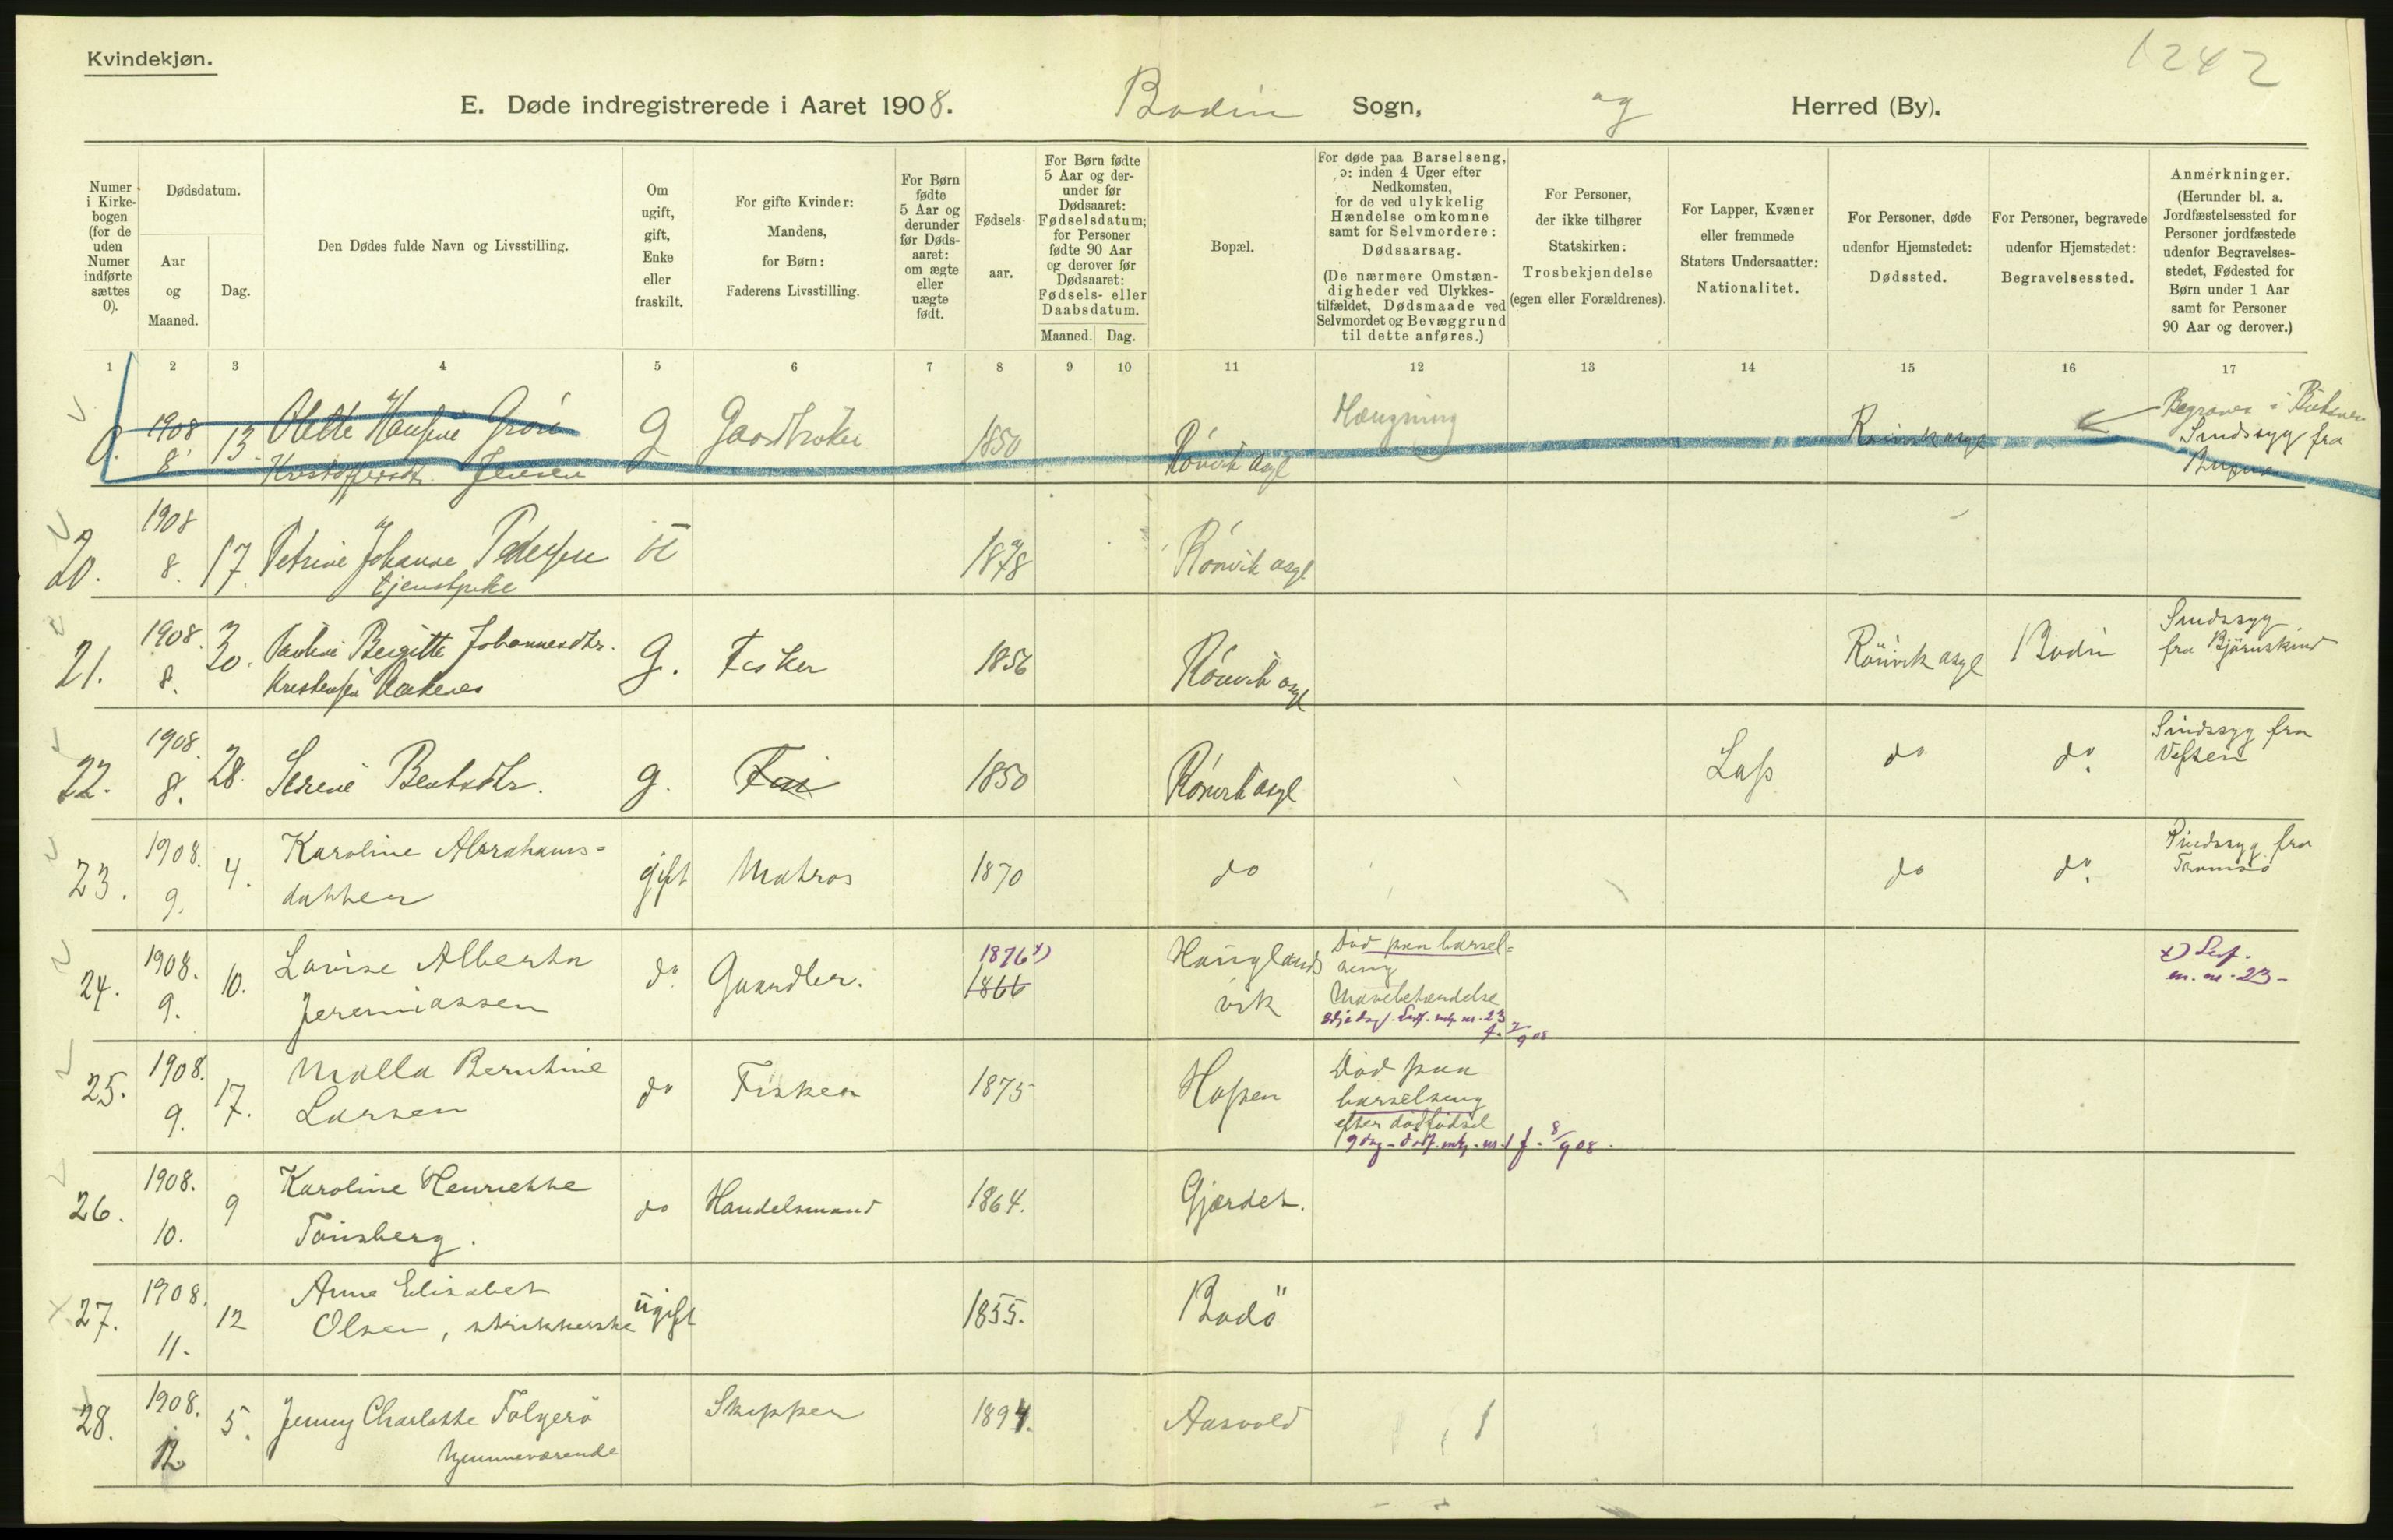 Kvindekjøn.
1242
E. Døde indregistrerede i Aaret 1908. Bodin Sogn, og Herred (By).
Numer i Kirkebogen (for de uden Numer indførte sættes 0).
Dødsdatum.
Aar og Maaned.
Dag.
Den Dødes fulde Navn og Livsstilling.
Om ugift, gift, Enke eller fraskilt.
For gifte Kvinder: Mandens, for Børn: Faderens Livsstilling.
For Børn fødte 5 Aar og derunder før Dødsaaret: om ægte eller uægte født.
Fødselsaar.
For Børn fødte 5 Aar og derunder før Dødsaaret: Fødselsdatum; for Personer fødte 90 Aar og derover før Dødsaaret: Fødsels- eller Daabsdatum.
Maaned. Dag.
Bopæl.
For døde paa Barselseng, ɔ: inden 4 Uger efter Nedkomsten, for de ved ulykkelig Hændelse omkomne samt for Selvmordere: Dødsaarsag.
(De nærmere Omstændigheder ved Ulykkestilfældet, Dødsmaade ved Selvmordet og Bevæggrund til dette anføres.)
For Personer, der ikke tilhører Statskirken: Trosbekjendelse (egen eller Forældrenes).
For Lapper, Kvæner eller fremmede Staters Undersaatter: Nationalitet.
For Personer, døde udenfor Hjemstedet: Dødssted.
For Personer, begravede udenfor Hjemstedet: Begravelsessted.
Anmerkninger. (Herunder bl. a. Jordfæstelsessted for Personer jordfæstede udenfor Begravelsesstedet, Fødested for Børn under 1 Aar samt for Personer 90 Aar og derover.)
1 2 3 4 5 6 7 8 9 10 11 12 13 14 15 16 17
0. 1908 8. 13. Olette Hansine G Gaardbruker 1850 Rönvik asyl Hængning Rönvik asyl Begraves i
Jensen Sindssyg fra
20. 1908 8. 17. Petrine Johanne Pedersen U 1878 Rönvik asyl
tjenstpike
21. 1908. 8. 30. Pauline Bergitte Johannesdtr. G. Fisker 1856 Rönvik asyl Rönvik asyl Bodin Sindssyg
Kristensen fra Björnskind
22. 1908. 8. 28. Serine Bentsdtr. g. 1850 Rönvik asyl Lap do do. Sindssyg fra
Vefsen
23. 1908. 9. 4. Karoline Abrahams- gift Matros 1870 do do do. Sindssyg fra
datter Tromsø
24. 1908. 9. 10. Lovise Alberta do Gaardbr. 1876 x) Hauglands Død paa barsel-
Jeremiassen 1866 vik seng
x)
m. nr. 23-
25. 1908. 9. 17. Malla Berntine do Fisker 1875 Hopen Død paa
Larsen barselseng
efter dødfødsel
26. 1908. 10. 9 Karoline Henriette do Handelsmand 1864. Gjærdet.
Tönsberg.
27. 1908. 11. 12 Anne Elisabet ugift 1855. Bodö
Olsen, strikkerske
28. 1908. 12 5. Jenny Charlotte Folgerö Skipper 1894. Aasvold
hjemmeværende